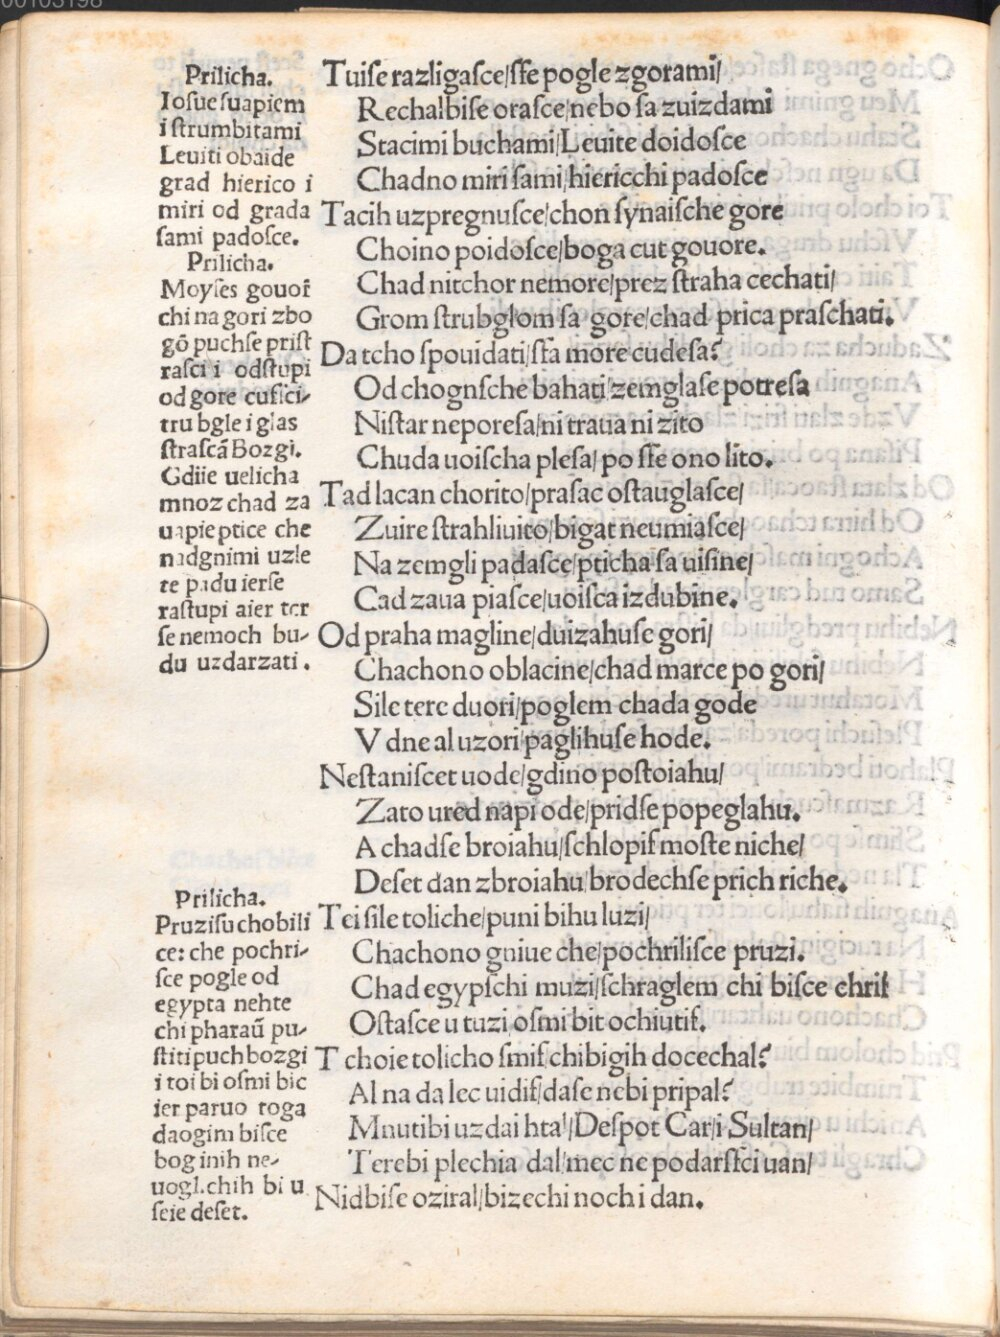 00103198
Prilicha.
Iosue suapiem
i strumbitami
Leuiti obaide
grad hierico i
miri od grada
sami padosce.
Prilicha.
Moyses gouoř
chi na gori zbo
gō puchse prist
rasci i odstupi
od gore cusici-
tru bgle i glas
strascā Bozgi.
Gdiie uelicha
mnoz chad za
uapie ptice che
nadgnimi uzle
te padu ierse
rastupi aier ter
se nemoch bu-
du uzdarzati.
Prilicha.
Pruzisu chobili
ce: che pochri-
sce pogle od
egypta nehte
chi pharaū pu-
stiti puch bozgi
i toi bi osmi bic
ier paruo toga
daogim bisce
bog inih ne-
uogl.chih bi u
seie deset.
Tuise razligasce/sse pogle zgorami/
Rechalbise orasce/nebo sa zuizdami
Stacimi buchami/Leuite doidosce
Chadno miri sami/hiericchi padosce
Tacih uzpregnusce/chon synaische gore
Choino poidosce/boga cut gouore.
Chad nitchor nemore/prez straha cechati/
Grom strubglom sa gore/chad prica praschati.
Da tcho spouidati/sfa more cudesa?
Od chognsche bahati/zemglase potresa
Nistar neporesa/ni traua ni zito
Chuda uoischa plesa/po sse ono lito.
Tad lacan chorito/prasac ostauglasce/
Zuire strahliuito/bigat neumiasce/
Na zemgli padasce/pticha sa uisine/
Cad zaua piasce/uoisca izdubine.
Od praha magline/duizahuse gori/
Chachono oblacine/chad marce po gori/
Sile tere duori/poglem chada gode
V dne al uzori/paglihuse hode.
Nestaniscet uode/gdino postoiahu/
Zato ured napi ode/pridse popeglahu.
A chadse broiahu/schlopif moste niche/
Deset dan zbroiahu/brodechse prich riche.
Tei sile toliche/puni bihu luzi/
Chachono gniue che/pochrilisce pruzi.
Chad egypschi muzi/schraglem chi bisce chrif
Ostasce u tuzi/osmi bit ochiutif.
T choie tolicho smif/chibigih docechal?
Al na da lec uidif/dase nebi pripal?
Mnutibi uzdai htal/Despot Car/i Sultan/
Terebi plechia dal/mec ne podarsfci uan/
Nidbise oziral/bizechi noch i dan.